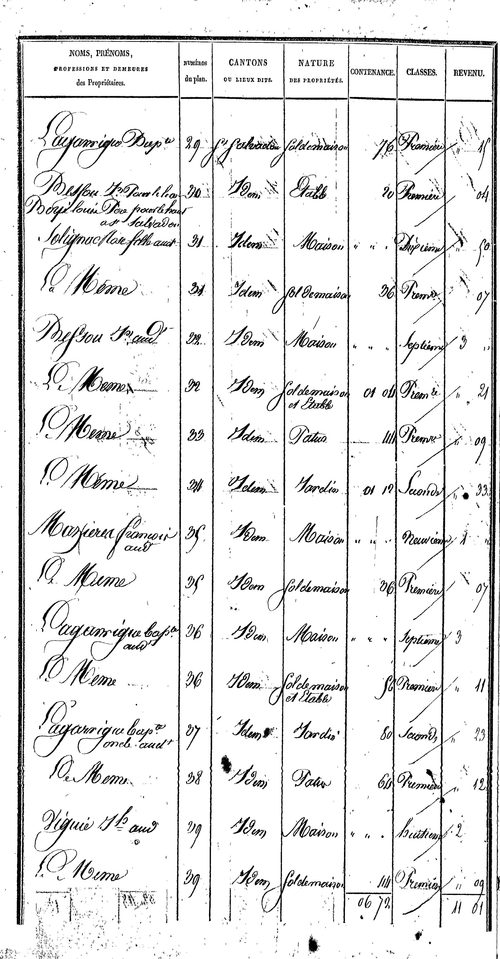 NOMS, PRÉNOMS, PROFESSIONS ET DEMEURES des Propriétaires. NUMÉROS du plan. CANTONS OU LIEUX DITS. NATURE DES PROPRIÉTÉS. CONTENANCE. CLASSES. REVENU.
Lagarrigue Bap.te 29 St Salvadou Sol de maison 76 Première 15
30 Idem Etable 20 Première 04
St Salvadou
31 Idem Maison " " " Dixième " 50
La Même 31 Idem Sol de maison 36 Prem.re 07
32 Idem Maison " " " Septième 3 "
Le Même 32 Idem Sol de maison et Etable 01 04 Prem.re " 21
Le Même 33 Idem Patus 44 Prem.re " 09
Le Même 34 Idem Jardin 01 12 Seconde " 33
Mazieres françois aud.t 35 Idem Maison " " " Neuvième 1 "
Le Même 35 Idem Sol de maison 36 Première " 07
Lagarrigue Bap.te aud.t 36 Idem Maison " " " Septième 3
Le Même 36 Idem Sol de maison et Etable 56 Première " 11
Lagarrigue Bap.te oncle aud.t 37 Idem Jardin 80 Seconde " 23
Le Même 38 Idem Patus 60 Première " 12
Viguié Jh aud.t 39 Idem Maison " " " huitième 2
Le Même 39 Idem Sol de maison 44 Première " 09
06 72 11 01